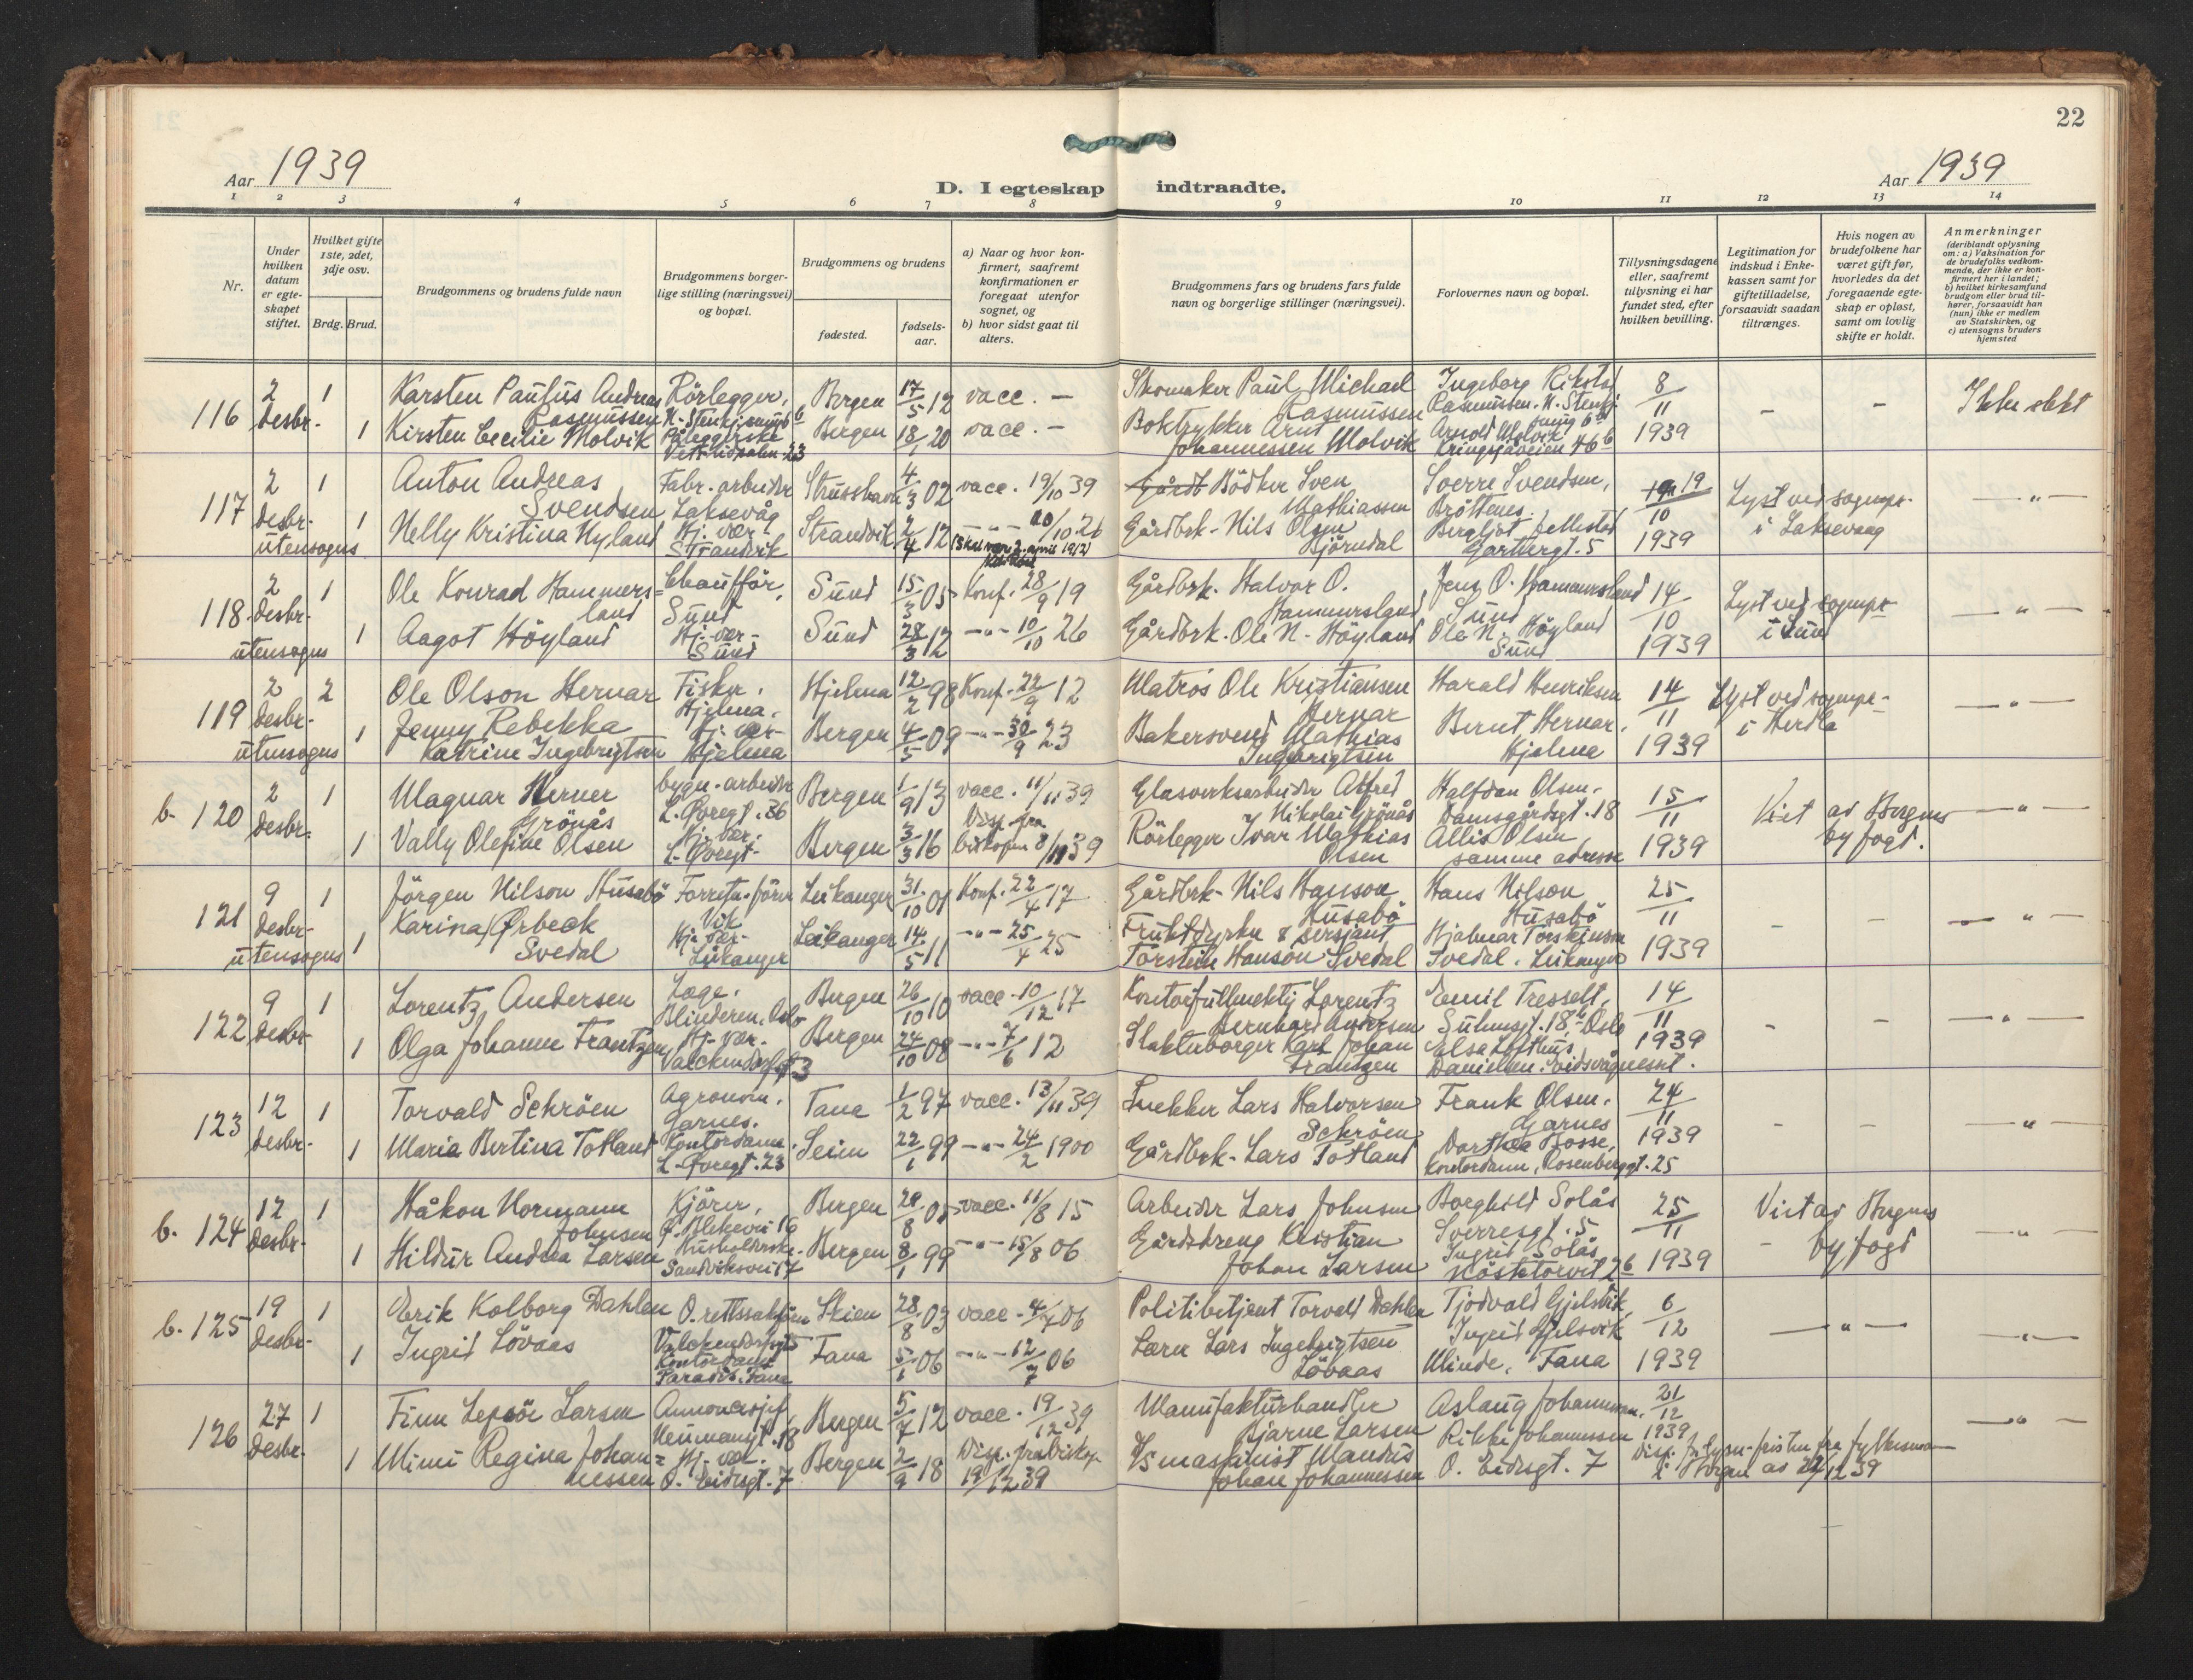 22
Aar 1939
D. I egteskap indtraadte.
Aar 1939
1 2 3 4 5 6 7 8 9 10 11 12 13 14
Nr.
Under hvilken datum er egteskapet stiftet.
Hvilket gifte 1ste, 2det, 3dje osv.
Brdg. Brud.
Brudgommens og brudens fulde navn
Brudgommens borgerlige stilling (næringsvei) og bopæl.
Brudgommens og brudens
fødested.
fødselsaar.
a) Naar og hvor konfirmert, saafremt konfirmationen er foregaat utenfor sognet, og
b) hvor sidst gaat til alters.
Brudgommens fars og brudens fars fulde navn og borgerlige stillinger (næringsvei).
Forlovernes navn og bopæl.
Tillysningsdagene eller, saafremt tillysning ei har fundet sted, efter hvilken bevilling.
Legitimation for indskud i Enkekassen samt for giftetilladelse, forsaavidt saadan tiltrænges.
Hvis nogen av brudefolkene har været gift før, hvorledes da det foregaaende egteskap er opløst, samt om lovlig skifte er holdt.
Anmerkninger
(deriblandt oplysning om: a) Vaksination for de brudefolks vedkommende, der ikke er konfirmert her i landet; b) hvilket kirkesamfund brudgom eller brud tilhører, forsaavidt han (hun) ikke er medlem av Statskirken, og c) utensogns bruders hjemsted
116 2 desbr. 1 Karsten Paulus Andreas Rasmussen Rörlegger, Bergen 17/5 12 vacc. — Skomaker Paul Michael Rasmussen Ingeborg Rasmussen. 8/11 1939 - - Ikke slekt
1 Kirsten Cecilie Molvik Bergen 18/1 20 vacc. — Boktrykker Arnt Johannessen Molvik Arnold Molvik Kringsjåveien 46b
117 2 desbr. utensogns 1 Anton Andreas Svendsen Fabr. arbeider Laksevåg Strusshavn 4/3 02 vacc. 19/10 39 Gårdb Bödker Sven Mathiassen Sverre Svendsen, Bröttenes. 19/10 1939 Lyst ved sognepr. i Laksevaag — " —
1 Nelly Kristina Nyland Hj. vær. Strandvik Strandvik 2/4 12 — " — 10/10 26 (Skal være 2. april 1912) Gårdbrk. Nils Olsen Björndal Bergljot Jellestad Gartnergt. 5
118 2 desbr. utensogns 1 Ole Konrad Hammersland Chaufför, Sund Sund 15/3 05 Konf. 28/9 19 Gårdbrk. Halvor O. Hammersland Jens O. Hammersland Sund 14/10 1939 Lyst ved sognepr. i Sund — " —
1 Aagot Höyland Hj. vær. Sund Sund 28/3 12 — " — 10/10 26 Gårdbrk. Ole N. Höyland Ole N. Höyland Sund
119 2 desbr. utensogns 2 Ole Olson Hernar Fisker. Hjelma. Hjelma 12/2 98 Konf. 22/9 12 Matros Ole Kristiansen Hernar Harald Henriksen 14/11 1939 Lyst ved sognepr. i Herdla — " —
1 Jenny Rebekka Katrine Ingebrigtsen Hj. vær. Hjelma Bergen 4/5 09 — " — 30/9 23 Bakersvend Mathias Ingebrigtsen Bernt Hernar. Hjelma
b. 120 2 desbr. 1 Magnar Werner Grönås bygn. arbeider L. Øvregt. 36 Bergen 1/9 13 vacc. 11/11 39 Glasverksarbeider Alfred Nikolai Grönås Halfdan Olsen. Damsgårdsgt. 18 15/11 1939 Viet av Bergens byfogd. — " —
1 Vally Olefine Olsen Hj. vær. L. Øvregt. Bergen 3/3 16 Disp. fra biskopen 8/11 39 Rörlegger Ivar Mathias Olsen Allis Olsen, samme adresse
121 9 desbr. utensogns 1 Jörgen Nilson Husabö Forretn. förer Vik Leikanger 31/10 01 Konf. 22/4 17 Gårdbrk. Nils Hanson Husabö Hans Nilson Husabö 25/11 1939 - - — " —
1 Karina Ørbeck Svedal Hj. vær. Leikanger Leikanger 14/5 11 — " — 25/4 25 Fruktdyrker & sersjant Torstein Hanson Svedal Hjalmar Torsteinson Svedal. Leikanger
122 9 desbr. 1 Lorentz Andersen Læge. Blinderen, Oslo Bergen 26/10 10 vacc. 10/12 17 Kontorfullmektig Lorentz Bernhard Andersen Emil Tresselt, Suhmsgt. 18b Oslo 14/11 1939 - - — " —
1 Olga Johanne Frantzen Hj. vær. Valckendorfsgt 3 Bergen 24/10 08 — " — 7/6 12 Slakterborger Karl Johan Frantzen Elsa Lofthus Danielsen. Eidsvågnesset.
123 12 desbr. 1 Torvald Schröen Agronom. Garnes. Tana 1/2 97 vacc. 13/11 39 Snekker Lars Halvorsen Schröen Frank Olsen. Garnes 24/11 1939 - - — " —
1 Maria Bertina Totland Kontordame. L. Øvregt. 23 Seim 22/1 99 — " — 24/2 1900 Gårdbrk. Lars Totland Dorthea Bosse, kontordame, Rosenberggt. 25
b. 124 12 desbr. 1 Håkon Normann Johnsen Kjörer, Ø. Blekevei 16 Bergen 29/8 05 vacc. 11/8 15 Arbeider Lars Johnsen Borghild Solås Sverresgt. 5 25/11 1939 Viet av Bergens byfogd — " —
1 Hildur Andrea Larsen Husholderske. Sandviksvei 17 Bergen 8/1 99 — " — 15/8 06 Gårdsdreng Kristian Johan Larsen Ingrid Solås Nöstetorvet 2b
b. 125 19 desbr. 1 Erik Kolborg Dahlen O. rettssakförer Valckendorfsgt Skien 28/8 03 vacc. 4/7 06 Politibetjent Torvald Dahlen Tjodvald Gjelsvik, 6/12 1939 — " — — " —
1 Ingrid Lövaas Kontordame Paradis. Fana Fana 5/1 06 — " — 12/7 06 Lærer Lars Ingebrigtsen Lövaas Ingrid Gjelsvik Minde, Fana
126 27 desbr. 1 Finn Lepsör Larsen Annonsesjef, Neumansgt. 18 Bergen 5/7 12 vacc. 19/12 39 Manufakturhandler Bjarne Larsen Aslaug Johannessen. 21/12 1939 — " —
1 Mimi Regina Johannessen Hj. vær. O. Eidsgt. 7 Bergen 2/9 18 Disp. fra biskop 19/12 39 D/S maskinist Mandius Johan Johannessen Rikke Johannessen O. Eidsgt. 7 Disp. f. lysn. fristen fra fylkesmann i Bergen av 22/12 39